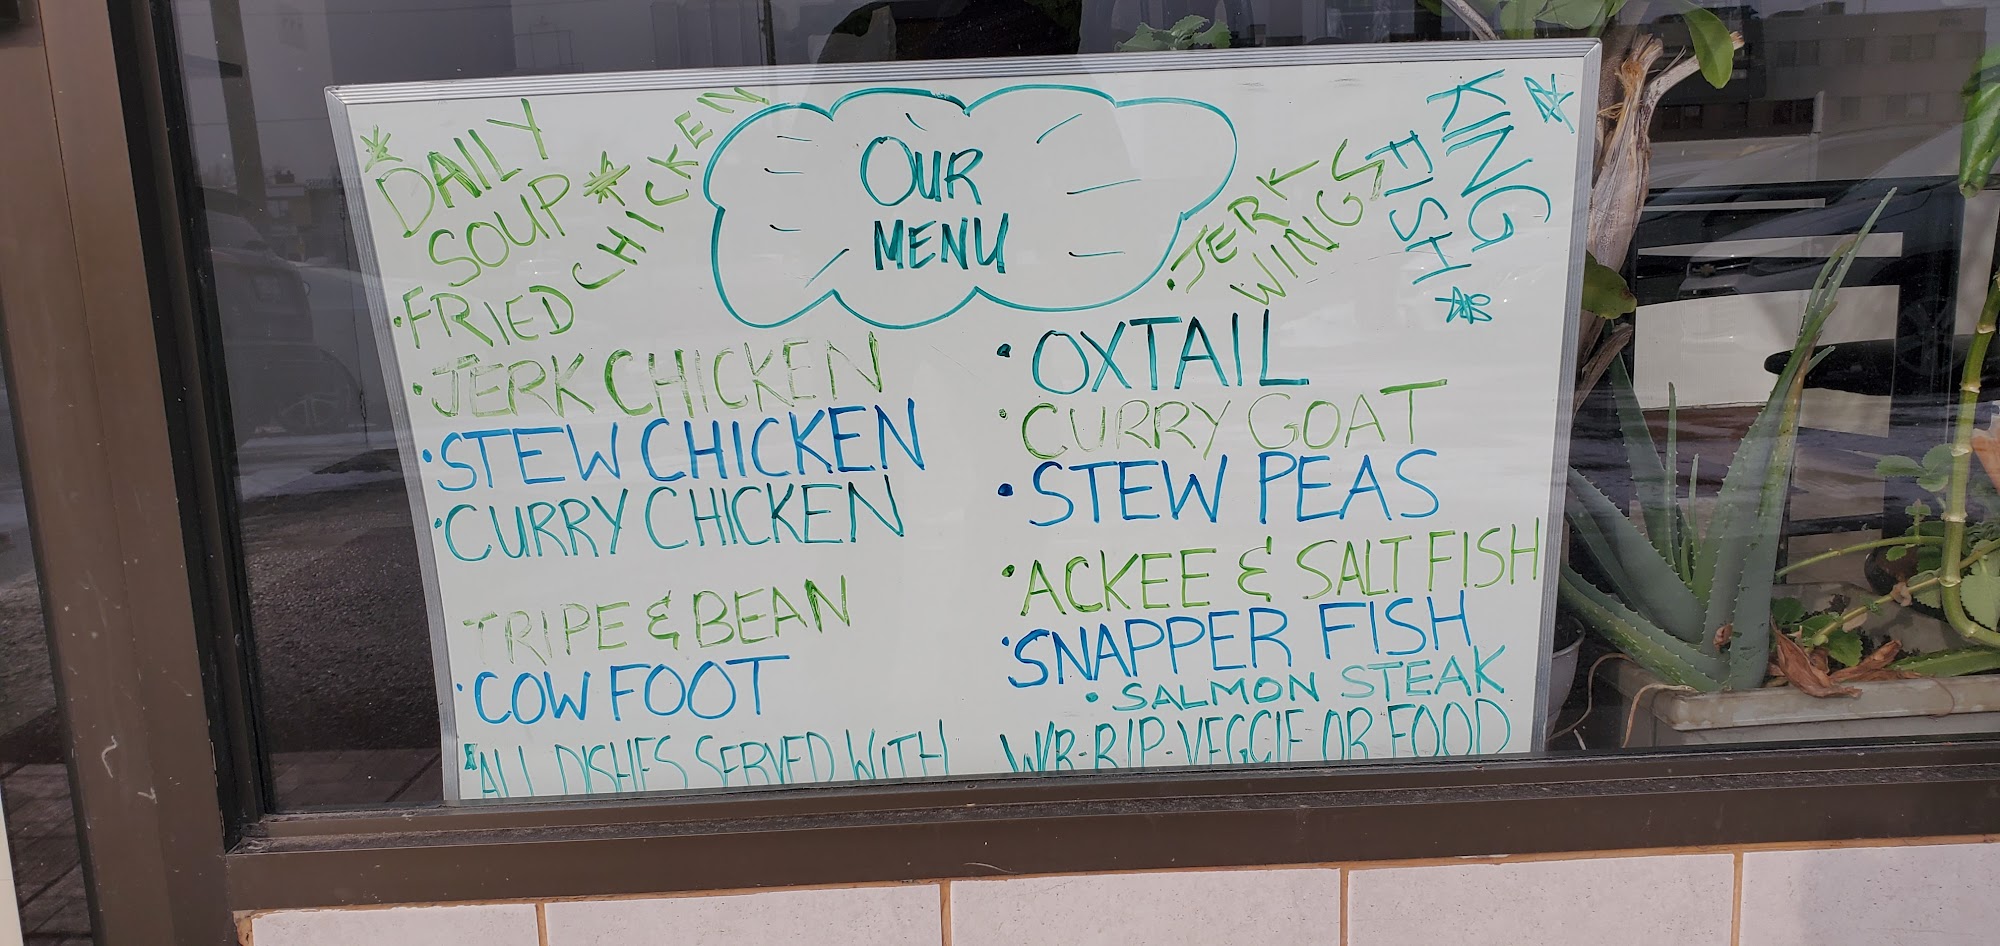 OUR
MENU
*DAILY
SOUP*
•FRIED CHICKEN
•JERK CHICKEN
•STEW CHICKEN
•CURRY CHICKEN
•TRIPE & BEAN
•COW FOOT
•JERK
WINGS
KING
FISH
•OXTAIL
•CURRY GOAT
•STEW PEAS
•ACKEE & SALT FISH
•SNAPPER FISH
•SALMON STEAK
*ALL DISHES SERVED WITH W/R-R/P-VEGGIE OR FOOD